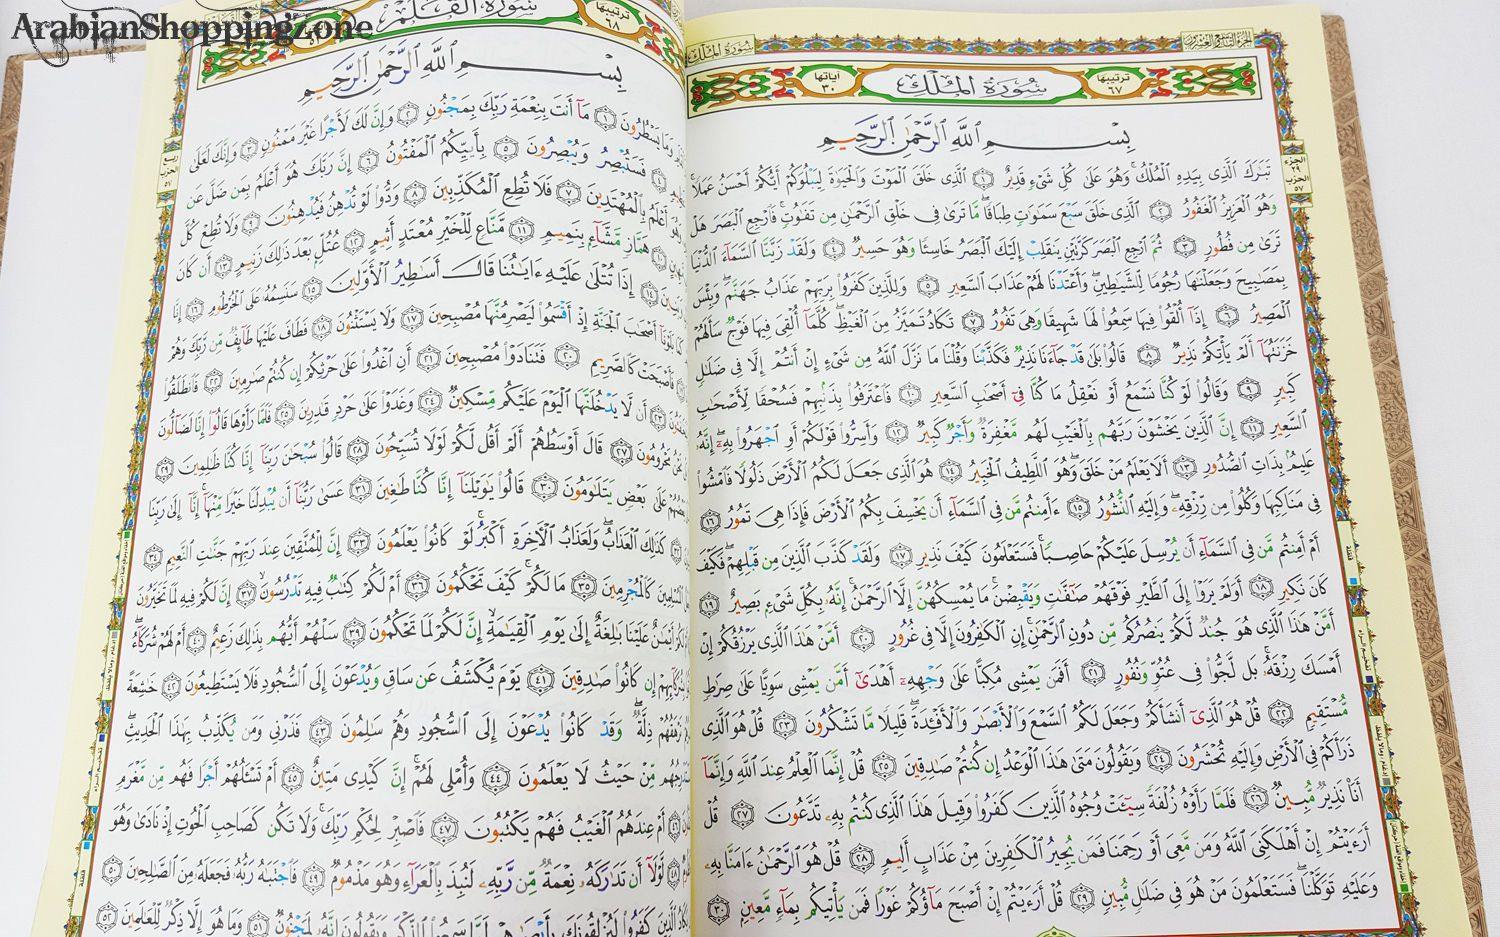 ArabianShoppingZone
الجزء التاسع والعشرون
سورة الملك
ترتيبها ٦٧
سُورَةُ المُلْكِ
آياتها ٣٠
بِسْمِ ٱللَّهِ ٱلرَّحْمَٰنِ ٱلرَّحِيمِ
تَبَٰرَكَ ٱلَّذِى بِيَدِهِ ٱلْمُلْكُ وَهُوَ عَلَىٰ كُلِّ شَىْءٍ قَدِيرٌ ١ ٱلَّذِى خَلَقَ ٱلْمَوْتَ وَٱلْحَيَوٰةَ لِيَبْلُوَكُمْ أَيُّكُمْ أَحْسَنُ عَمَلًا
وَهُوَ ٱلْعَزِيزُ ٱلْغَفُورُ ٢ ٱلَّذِى خَلَقَ سَبْعَ سَمَٰوَٰتٍ طِبَاقًا مَّا تَرَىٰ فِى خَلْقِ ٱلرَّحْمَٰنِ مِن تَفَٰوُتٍ فَٱرْجِعِ ٱلْبَصَرَ هَلْ
تَرَىٰ مِن فُطُورٍ ٣ ثُمَّ ٱرْجِعِ ٱلْبَصَرَ كَرَّتَيْنِ يَنقَلِبْ إِلَيْكَ ٱلْبَصَرُ خَاسِئًا وَهُوَ حَسِيرٌ ٤ وَلَقَدْ زَيَّنَّا ٱلسَّمَآءَ ٱلدُّنْيَا
بِمَصَٰبِيحَ وَجَعَلْنَٰهَا رُجُومًا لِّلشَّيَٰطِينِ وَأَعْتَدْنَا لَهُمْ عَذَابَ ٱلسَّعِيرِ ٥ وَلِلَّذِينَ كَفَرُوا۟ بِرَبِّهِمْ عَذَابُ جَهَنَّمَ وَبِئْسَ
ٱلْمَصِيرُ ٦ إِذَآ أُلْقُوا۟ فِيهَا سَمِعُوا۟ لَهَا شَهِيقًا وَهِىَ تَفُورُ ٧ تَكَادُ تَمَيَّزُ مِنَ ٱلْغَيْظِ كُلَّمَآ أُلْقِىَ فِيهَا فَوْجٌ سَأَلَهُمْ
خَزَنَتُهَآ أَلَمْ يَأْتِكُمْ نَذِيرٌ ٨ قَالُوا۟ بَلَىٰ قَدْ جَآءَنَا نَذِيرٌ فَكَذَّبْنَا وَقُلْنَا مَا نَزَّلَ ٱللَّهُ مِن شَىْءٍ إِنْ أَنتُمْ إِلَّا فِى ضَلَٰلٍ
كَبِيرٍ ٩ وَقَالُوا۟ لَوْ كُنَّا نَسْمَعُ أَوْ نَعْقِلُ مَا كُنَّا فِىٓ أَصْحَٰبِ ٱلسَّعِيرِ ١٠ فَٱعْتَرَفُوا۟ بِذَنۢبِهِمْ فَسُحْقًا لِّأَصْحَٰبِ
ٱلسَّعِيرِ ١١ إِنَّ ٱلَّذِينَ يَخْشَوْنَ رَبَّهُم بِٱلْغَيْبِ لَهُم مَّغْفِرَةٌ وَأَجْرٌ كَبِيرٌ ١٢ وَأَسِرُّوا۟ قَوْلَكُمْ أَوِ ٱجْهَرُوا۟ بِهِۦٓ إِنَّهُۥ
عَلِيمٌۢ بِذَاتِ ٱلصُّدُورِ ١٣ أَلَا يَعْلَمُ مَنْ خَلَقَ وَهُوَ ٱللَّطِيفُ ٱلْخَبِيرُ ١٤ هُوَ ٱلَّذِى جَعَلَ لَكُمُ ٱلْأَرْضَ ذَلُولًا فَٱمْشُوا۟
فِى مَنَاكِبِهَا وَكُلُوا۟ مِن رِّزْقِهِۦ وَإِلَيْهِ ٱلنُّشُورُ ١٥ ءَأَمِنتُم مَّن فِى ٱلسَّمَآءِ أَن يَخْسِفَ بِكُمُ ٱلْأَرْضَ فَإِذَا هِىَ تَمُورُ ١٦
أَمْ أَمِنتُم مَّن فِى ٱلسَّمَآءِ أَن يُرْسِلَ عَلَيْكُمْ حَاصِبًا فَسَتَعْلَمُونَ كَيْفَ نَذِيرِ ١٧ وَلَقَدْ كَذَّبَ ٱلَّذِينَ مِن قَبْلِهِمْ فَكَيْفَ
كَانَ نَكِيرِ ١٨ أَوَلَمْ يَرَوْا۟ إِلَى ٱلطَّيْرِ فَوْقَهُمْ صَٰٓفَّٰتٍ وَيَقْبِضْنَ مَا يُمْسِكُهُنَّ إِلَّا ٱلرَّحْمَٰنُ إِنَّهُۥ بِكُلِّ شَىْءٍۭ بَصِيرٌ ١٩
أَمَّنْ هَٰذَا ٱلَّذِى هُوَ جُندٌ لَّكُمْ يَنصُرُكُم مِّن دُونِ ٱلرَّحْمَٰنِ إِنِ ٱلْكَٰفِرُونَ إِلَّا فِى غُرُورٍ ٢٠ أَمَّنْ هَٰذَا ٱلَّذِى يَرْزُقُكُمْ إِنْ
أَمْسَكَ رِزْقَهُۥ بَل لَّجُّوا۟ فِى عُتُوٍّ وَنُفُورٍ ٢١ أَفَمَن يَمْشِى مُكِبًّا عَلَىٰ وَجْهِهِۦٓ أَهْدَىٰٓ أَمَّن يَمْشِى سَوِيًّا عَلَىٰ صِرَٰطٍ
مُّسْتَقِيمٍ ٢٢ قُلْ هُوَ ٱلَّذِىٓ أَنشَأَكُمْ وَجَعَلَ لَكُمُ ٱلسَّمْعَ وَٱلْأَبْصَٰرَ وَٱلْأَفْـِٔدَةَ قَلِيلًا مَّا تَشْكُرُونَ ٢٣ قُلْ هُوَ ٱلَّذِى
ذَرَأَكُمْ فِى ٱلْأَرْضِ وَإِلَيْهِ تُحْشَرُونَ ٢٤ وَيَقُولُونَ مَتَىٰ هَٰذَا ٱلْوَعْدُ إِن كُنتُمْ صَٰدِقِينَ ٢٥ قُلْ إِنَّمَا ٱلْعِلْمُ عِندَ ٱللَّهِ وَإِنَّمَآ
أَنَا۠ نَذِيرٌ مُّبِينٌ ٢٦ فَلَمَّا رَأَوْهُ زُلْفَةً سِيٓـَٔتْ وُجُوهُ ٱلَّذِينَ كَفَرُوا۟ وَقِيلَ هَٰذَا ٱلَّذِى كُنتُم بِهِۦ تَدَّعُونَ ٢٧ قُلْ
أَرَءَيْتُمْ إِنْ أَهْلَكَنِىَ ٱللَّهُ وَمَن مَّعِىَ أَوْ رَحِمَنَا فَمَن يُجِيرُ ٱلْكَٰفِرِينَ مِنْ عَذَابٍ أَلِيمٍ ٢٨ قُلْ هُوَ ٱلرَّحْمَٰنُ ءَامَنَّا بِهِۦ
وَعَلَيْهِ تَوَكَّلْنَا فَسَتَعْلَمُونَ مَنْ هُوَ فِى ضَلَٰلٍ مُّبِينٍ ٢٩ قُلْ أَرَءَيْتُمْ إِنْ أَصْبَحَ مَآؤُكُمْ غَوْرًا فَمَن يَأْتِيكُم بِمَآءٍ مَّعِينٍۭ ٣٠
الجزء ٢٩
الحزب ٥٧
ترتيبها ٦٨
سُورَةُ القَلَمِ
بِسْمِ ٱللَّهِ ٱلرَّحْمَٰنِ ٱلرَّحِيمِ
وَمَا يَسْطُرُونَ ١ مَآ أَنتَ بِنِعْمَةِ رَبِّكَ بِمَجْنُونٍ ٢ وَإِنَّ لَكَ لَأَجْرًا غَيْرَ مَمْنُونٍ ٣ وَإِنَّكَ لَعَلَىٰ
فَسَتُبْصِرُ وَيُبْصِرُونَ ٥ بِأَييِّكُمُ ٱلْمَفْتُونُ ٦ إِنَّ رَبَّكَ هُوَ أَعْلَمُ بِمَن ضَلَّ عَن
أَعْلَمُ بِٱلْمُهْتَدِينَ ٧ فَلَا تُطِعِ ٱلْمُكَذِّبِينَ ٨ وَدُّوا۟ لَوْ تُدْهِنُ فَيُدْهِنُونَ ٩ وَلَا تُطِعْ كُلَّ
١٠ هَمَّازٍ مَّشَّآءٍۭ بِنَمِيمٍ ١١ مَّنَّاعٍ لِّلْخَيْرِ مُعْتَدٍ أَثِيمٍ ١٢ عُتُلٍّۭ بَعْدَ ذَٰلِكَ زَنِيمٍ ١٣ أَن كَانَ
١٤ إِذَا تُتْلَىٰ عَلَيْهِ ءَايَٰتُنَا قَالَ أَسَٰطِيرُ ٱلْأَوَّلِينَ ١٥ سَنَسِمُهُۥ عَلَى ٱلْخُرْطُومِ ١٦ إِنَّا
بَلَوْنَآ أَصْحَٰبَ ٱلْجَنَّةِ إِذْ أَقْسَمُوا۟ لَيَصْرِمُنَّهَا مُصْبِحِينَ ١٧ وَلَا يَسْتَثْنُونَ ١٨ فَطَافَ عَلَيْهَا طَآئِفٌ مِّن رَّبِّكَ وَهُمْ
فَأَصْبَحَتْ كَٱلصَّرِيمِ ٢٠ فَتَنَادَوْا۟ مُصْبِحِينَ ٢١ أَنِ ٱغْدُوا۟ عَلَىٰ حَرْثِكُمْ إِن كُنتُمْ صَٰرِمِينَ ٢٢ فَٱنطَلَقُوا۟
٢٣ أَن لَّا يَدْخُلَنَّهَا ٱلْيَوْمَ عَلَيْكُم مِّسْكِينٌ ٢٤ وَغَدَوْا۟ عَلَىٰ حَرْدٍ قَٰدِرِينَ ٢٥ فَلَمَّا رَأَوْهَا قَالُوٓا۟ إِنَّا لَضَآلُّونَ
مَحْرُومُونَ ٢٧ قَالَ أَوْسَطُهُمْ أَلَمْ أَقُل لَّكُمْ لَوْلَا تُسَبِّحُونَ ٢٨ قَالُوا۟ سُبْحَٰنَ رَبِّنَآ إِنَّا كُنَّا ظَٰلِمِينَ ٢٩
عَلَىٰ بَعْضٍ يَتَلَٰوَمُونَ ٣٠ قَالُوا۟ يَٰوَيْلَنَآ إِنَّا كُنَّا طَٰغِينَ ٣١ عَسَىٰ رَبُّنَآ أَن يُبْدِلَنَا خَيْرًا مِّنْهَآ إِنَّآ إِلَىٰ رَبِّنَا
كَذَٰلِكَ ٱلْعَذَابُ وَلَعَذَابُ ٱلْءَاخِرَةِ أَكْبَرُ لَوْ كَانُوا۟ يَعْلَمُونَ ٣٣ إِنَّ لِلْمُتَّقِينَ عِندَ رَبِّهِمْ جَنَّٰتِ ٱلنَّعِيمِ ٣٤
ٱلْمُسْلِمِينَ كَٱلْمُجْرِمِينَ ٣٥ مَا لَكُمْ كَيْفَ تَحْكُمُونَ ٣٦ أَمْ لَكُمْ كِتَٰبٌ فِيهِ تَدْرُسُونَ ٣٧ إِنَّ لَكُمْ فِيهِ لَمَا تَخَيَّرُونَ
أَيْمَٰنٌ عَلَيْنَا بَٰلِغَةٌ إِلَىٰ يَوْمِ ٱلْقِيَٰمَةِ إِنَّ لَكُمْ لَمَا تَحْكُمُونَ ٣٩ سَلْهُمْ أَيُّهُم بِذَٰلِكَ زَعِيمٌ ٤٠ أَمْ لَهُمْ شُرَكَآءُ
إِن كَانُوا۟ صَٰدِقِينَ ٤١ يَوْمَ يُكْشَفُ عَن سَاقٍ وَيُدْعَوْنَ إِلَى ٱلسُّجُودِ فَلَا يَسْتَطِيعُونَ ٤٢ خَٰشِعَةً
تَرْهَقُهُمْ ذِلَّةٌ وَقَدْ كَانُوا۟ يُدْعَوْنَ إِلَى ٱلسُّجُودِ وَهُمْ سَٰلِمُونَ ٤٣ فَذَرْنِى وَمَن يُكَذِّبُ بِهَٰذَا ٱلْحَدِيثِ
مِّنْ حَيْثُ لَا يَعْلَمُونَ ٤٤ وَأُمْلِى لَهُمْ إِنَّ كَيْدِى مَتِينٌ ٤٥ أَمْ تَسْـَٔلُهُمْ أَجْرًا فَهُم مِّن مَّغْرَمٍ
٤٦ أَمْ عِندَهُمُ ٱلْغَيْبُ فَهُمْ يَكْتُبُونَ ٤٧ فَٱصْبِرْ لِحُكْمِ رَبِّكَ وَلَا تَكُن كَصَاحِبِ ٱلْحُوتِ إِذْ نَادَىٰ وَهُوَ
٤٨ لَّوْلَآ أَن تَدَٰرَكَهُۥ نِعْمَةٌ مِّن رَّبِّهِۦ لَنُبِذَ بِٱلْعَرَآءِ وَهُوَ مَذْمُومٌ ٤٩ فَٱجْتَبَٰهُ رَبُّهُۥ فَجَعَلَهُۥ مِنَ ٱلصَّٰلِحِينَ ٥٠
ٱلَّذِينَ كَفَرُوا۟ لَيُزْلِقُونَكَ بِأَبْصَٰرِهِمْ لَمَّا سَمِعُوا۟ ٱلذِّكْرَ وَيَقُولُونَ إِنَّهُۥ لَمَجْنُونٌ ٥١ وَمَا هُوَ إِلَّا ذِكْرٌ لِّلْعَٰلَمِينَ ٥٢
ربع الحزب ٥٧